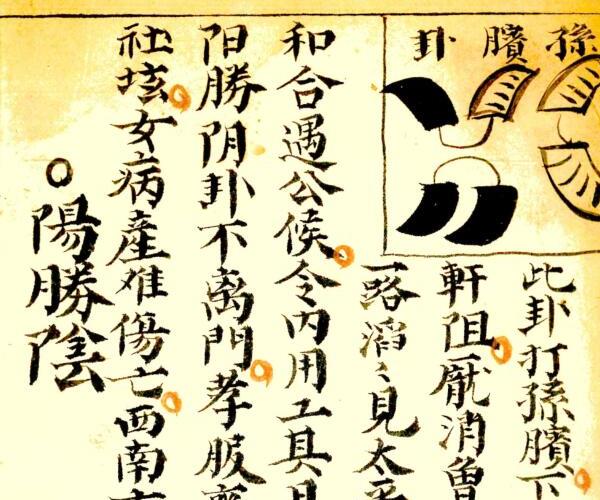 孫臏卦
此卦打孫臏下
軒阻厭消魯
一路滔〻見太平
和合遇公侯令内用工具見
阳勝阴卦不离門孝服齊
社坛女病產难傷亡西南方
陽勝陰